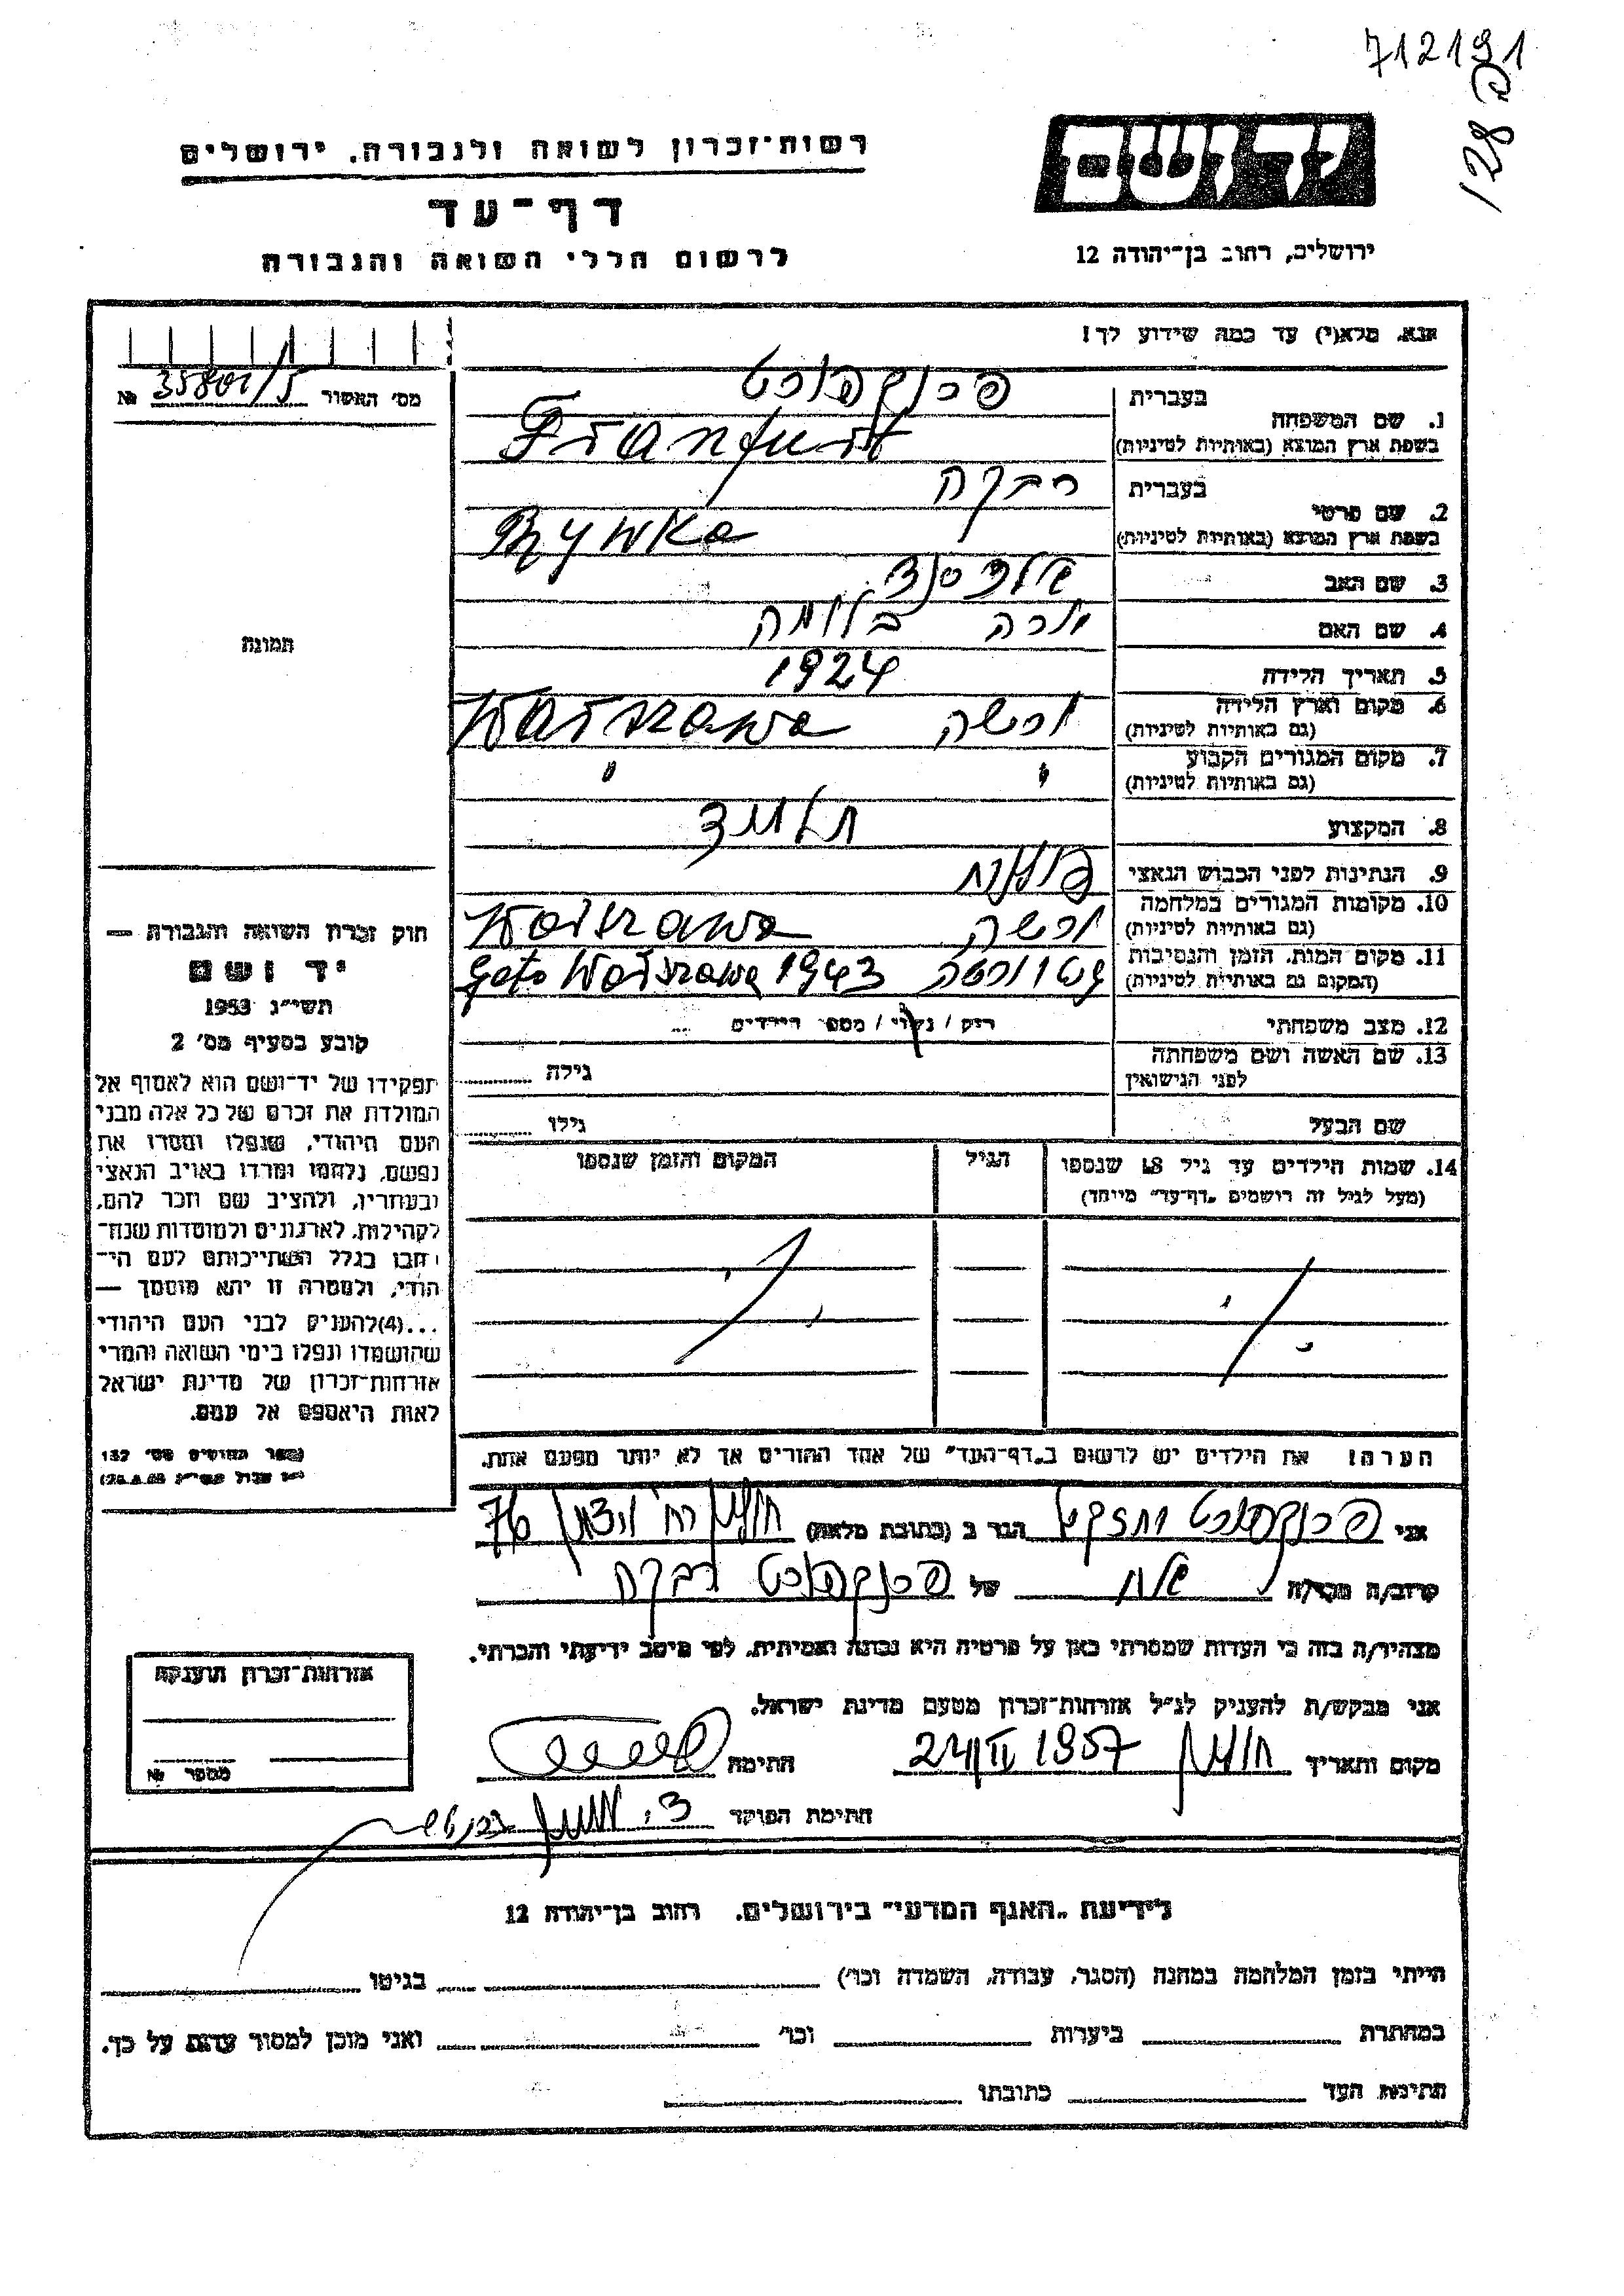 712191
128 פ
יד ושם
ירושלים, רחוב בן־יהודה 12
רשות־זכרון לשואה ולגבורה, ירושלים
דף־עד
לרשום חללי השואה והגבורה
אנא, מלא(י) עד כמה שידוע לך!
מס׳ האשור № 35801/5
1. שם המשפחה בעברית פרנקפורט
בשפת ארץ המוצא (באותיות לטיניות) Franfurt
2. שם פרטי בעברית רבקה
בשפת ארץ המוצא (באותיות לטיניות) Rywka
3. שם האב
4. שם האם שרה בלומה
5. תאריך הלידה 1924
6. מקום וארץ הלידה ורשה Warszawa
(גם באותיות לטיניות)
7. מקום המגורים הקבוע " "
(גם באותיות לטיניות)
8. המקצוע תלמיד
9. הנתינות לפני הכבוש הנאצי פולנית
10. מקומות המגורים במלחמה ורשה Warszawa
(גם באותיות לטיניות)
11. מקום המות, הזמן והנסיבות גטו ורשה 1943 Geto Warszawa
(המקום גם באותיות לטיניות)
12. מצב משפחתי רוק / נשוי / מספר הילדים
13. שם האשה ושם משפחתה
לפני הנישואין גילה
שם הבעל גילו
14. שמות הילדים עד גיל 18 שנספו הגיל המקום והזמן שנספו
(מעל לגיל זה רושמים „דף־עד” מיוחד)
הערה! את הילדים יש לרשום ב„דף־העד” של אחד ההורים אך לא יותר מפעם אחת.
תמונה
חוק זכרון השואה והגבורה —
יד ושם
תשי״ג 1953
קובע בסעיף מס׳ 2
תפקידו של יד־ושם הוא לאסוף אל
המולדת את זכרם של כל אלה מבני
העם היהודי, שנפלו ומסרו את
נפשם, נלחמו ומרדו באויב הנאצי
ובעוזריו, ולהציב שם וזכר להם,
לקהילות, לארגונים ולמוסדות שנח־
רבו בגלל השתייכותם לעם הי־
הודי, ולמטרה זו יהא מוסמך —
...(4)להעניק לבני העם היהודי
שהושמדו ונפלו בימי השואה והמרי
אזרחות־זכרון של מדינת ישראל
לאות היאספם אל עמם.
ספר החוקים מס׳ 132
אני פרנקפורט יחזקאל הגר ב (כתובת מלאה) חולון רח׳ 76
קרוב/ה מכר/ה של פרנקפורט רבקה
מצהיר/ה בזה כי העדות שמסרתי כאן על פרטיה היא נכונה ואמיתית, לפי מיטב ידיעתי והכרתי.
אני מבקש/ת להעניק לנ״ל אזרחות־זכרון מטעם מדינת ישראל.
מקום ותאריך חולון 24/II 1957 חתימה
חתימת הפוקד
אזרחות־זכרון הוענקה
מספר №
לידיעת „האגף המדעי” בירושלים, רחוב בן־יהודה 12
הייתי בזמן המלחמה במחנה (הסגר, עבודה, השמדה וכו׳) בגיטו
במחתרת ביערות וכו׳ ואני מוכן למסור עדות על כך.
חתימת העד כתובתו